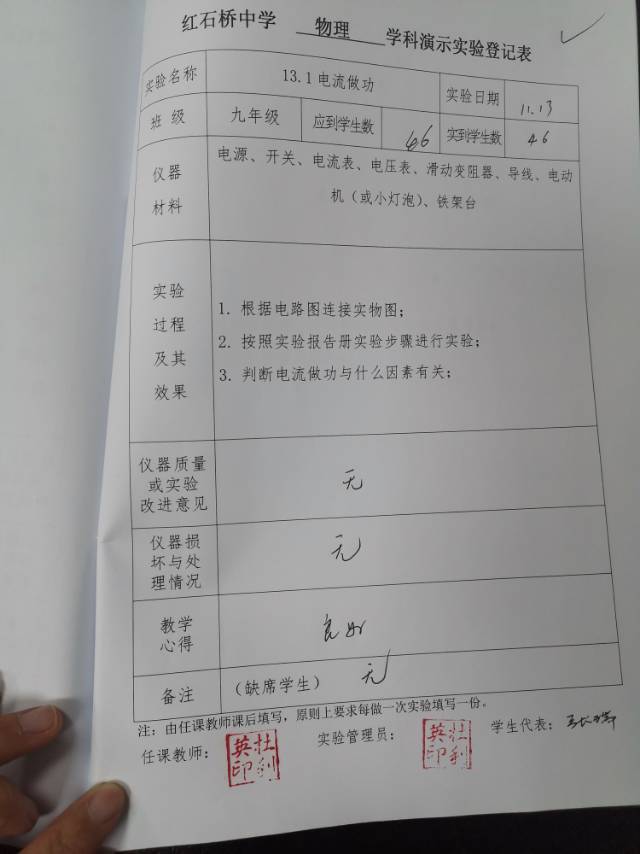 红石桥中学 物理 学科演示实验登记表
实验名称 13.1电流做功 实验日期 11.13
班 级 九年级 应到学生数 46 实到学生数 46
仪器材料 电源、开关、电流表、电压表、滑动变阻器、导线、电动
机（或小灯泡）、铁架台
实验
过程
及其
效果
1. 根据电路图连接实物图；
2. 按照实验报告册实验步骤进行实验；
3. 判断电流做功与什么因素有关；
仪器质量
或实验
改进意见
无
仪器损
坏与处
理情况
无
教学
心得
良好
备注 （缺席学生） 无
注：由任课教师课后填写，原则上要求每做一次实验填写一份。
任课教师： 杜利英印 实验管理员： 杜利英印 学生代表：